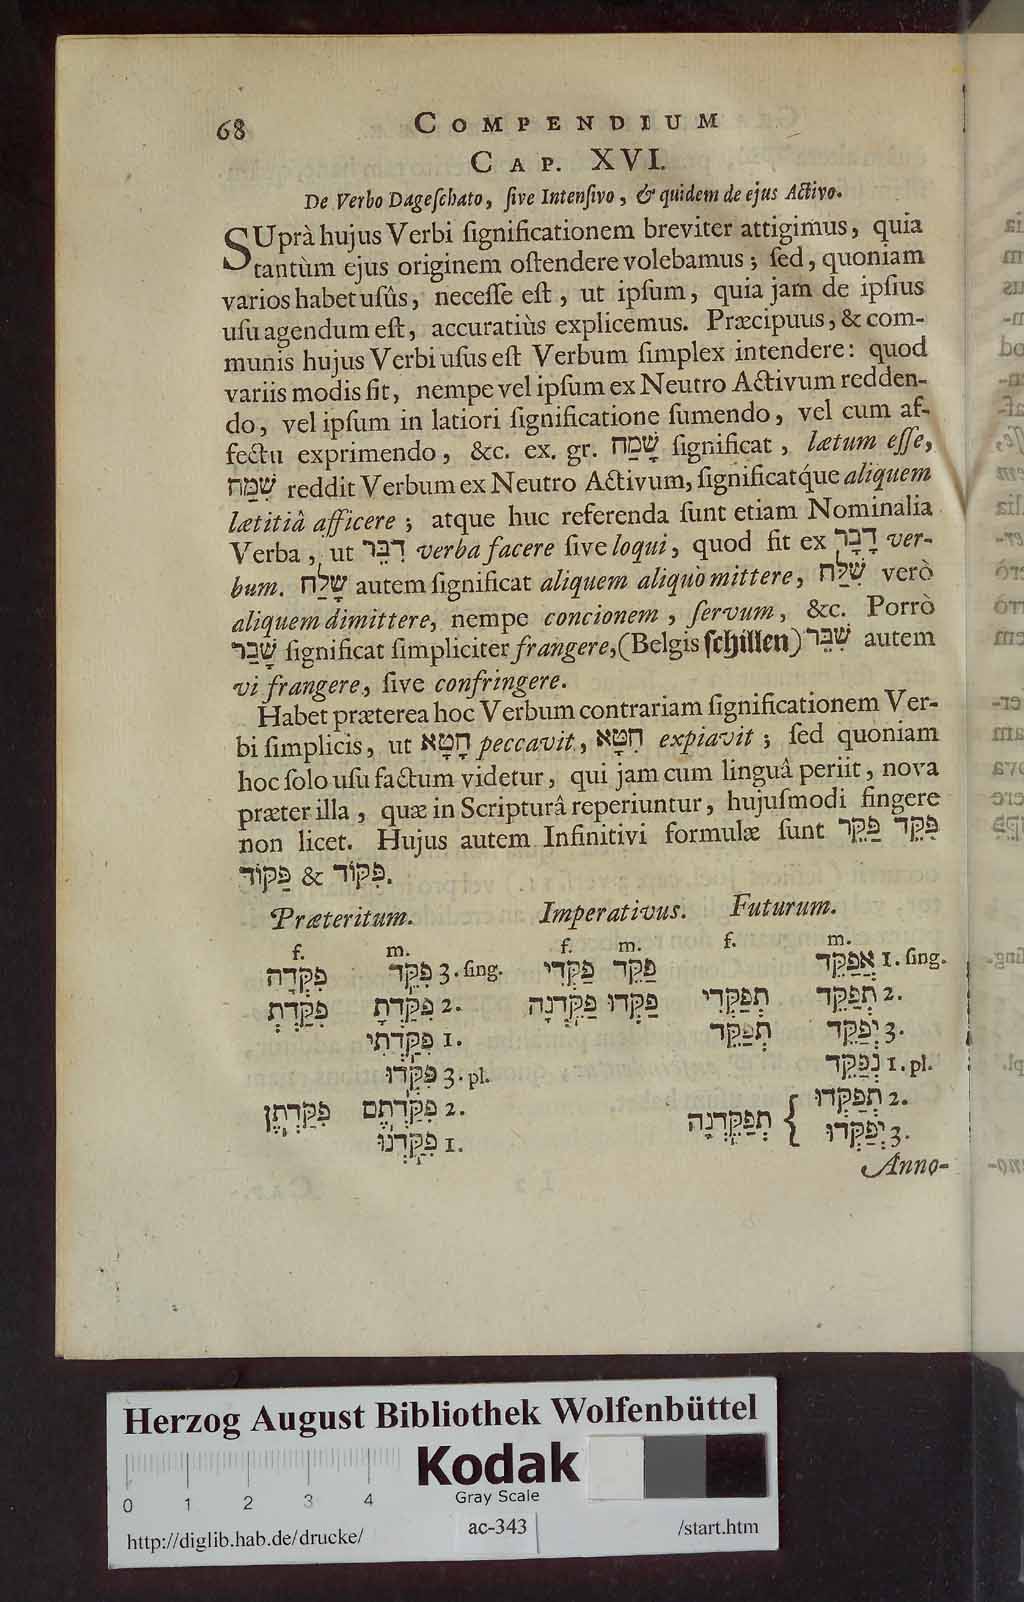 68 COMPENDIUM
CAP. XVI.
De Verbo Dageſchato, ſive Intenſivo, & quidem de ejus Activo.
SUprà hujus Verbi ſignificationem breviter attigimus, quia
tantùm ejus originem oſtendere volebamus; ſed, quoniam
varios habet uſûs, neceſſe eſt, ut ipſum, quia jam de ipſius
uſu agendum eſt, accuratiùs explicemus. Præcipuus, & com-
munis hujus Verbi uſus eſt Verbum ſimplex intendere: quod
variis modis fit, nempe vel ipſum ex Neutro Activum redden-
do, vel ipſum in latiori ſignificatione ſumendo, vel cum af-
fectu exprimendo, &c. ex. gr. שָׂמַח ſignificat, lætum eſſe,
שִׂמַּח reddit Verbum ex Neutro Activum, ſignificatque aliquem
lætitiâ afficere; atque huc referenda ſunt etiam Nominalia
Verba, ut דִּבֵּר verba facere ſive loqui, quod fit ex דָּבָר ver-
bum. שָׁלַח autem ſignificat aliquem aliquò mittere, שִׁלַּח verò
aliquem dimittere, nempe concionem, ſervum, &c. Porrò
שָׁבַר ſignificat ſimpliciter frangere, (Belgis ſchillen) שִׁבֵּר autem
vi frangere, ſive confringere.
Habet præterea hoc Verbum contrariam ſignificationem Ver-
bi ſimplicis, ut חָטָא peccavit, חִטָּא expiavit; ſed quoniam
hoc ſolo uſu factum videtur, qui jam cum linguâ periit, nova
præter illa, quæ in Scripturâ reperiuntur, hujuſmodi fingere
non licet. Hujus autem Infinitivi formulæ ſunt פִּקֵּד פַּקֵּר
פִּקּוֹד & פַּקּוֹד.
Præteritum. Imperativus. Futurum.
f. m. f. m. f. m.
פִּקְּדָה פִּקֵּד 3. ſing. פַּקְּדִי פַּקֵּד אֲפַקֵּד 1. ſing.
פִּקַּדְתְּ פִּקַּדְתָּ 2. פַּקֵּדְנָה פַּקְּדוּ תְּפַקְּדִי תְּפַקֵּד 2.
פִּקַּדְתִּי 1. תְּפַקֵּד יְפַקֵּד 3.
פִּקְּדוּ 3. pl. נְפַקֵּד 1. pl.
פִּקַּדְתֶּן פִּקַּדְתֶּם 2. תְּפַקֵּדְנָה { תְּפַקְּדוּ 2.
פִּקַּדְנוּ 1. יְפַקְּדוּ 3.
Anno-
Herzog August Bibliothek Wolfenbüttel
0 1 2 3 4
Kodak
Gray Scale
http://diglib.hab.de/drucke/ ac-343 /start.htm